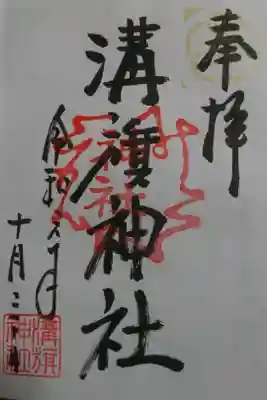 奉拝
溝旗神社
令和元年
十月二日
溝旗
神社